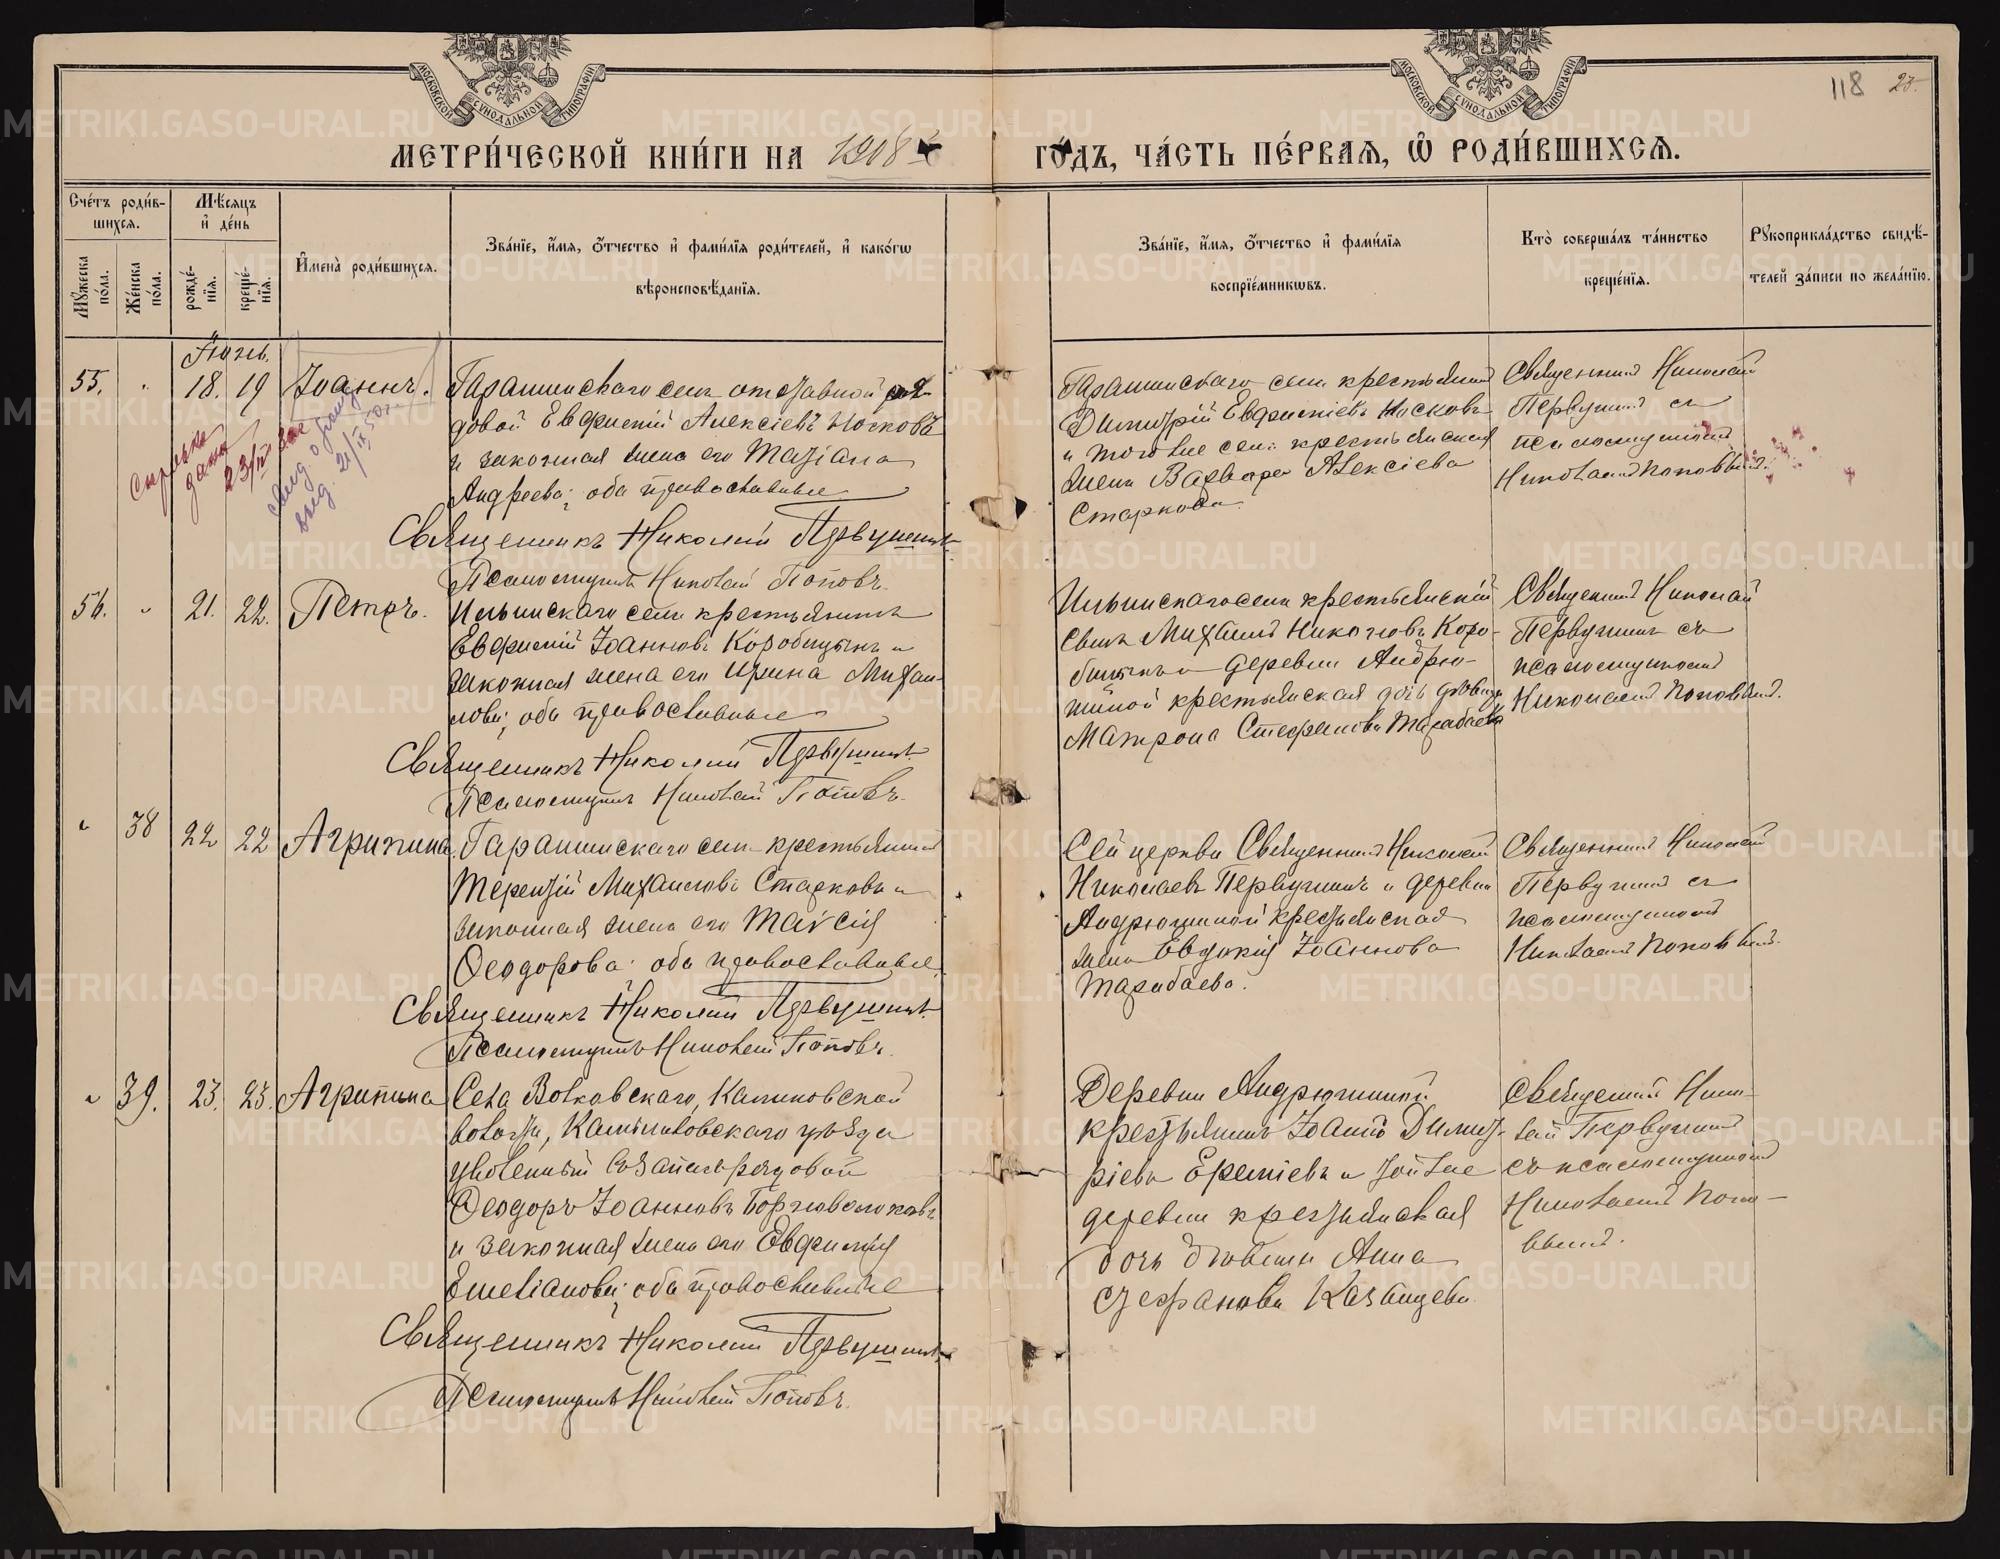 118 25.
МОСКОВСКОЙ СУНОДАЛЬНОЙ ТИПОГРАФІИ
МОСКОВСКОЙ СУНОДАЛЬНОЙ ТИПОГРАФІИ
МЕТРИ́ЧЕСКОЙ КНИ́ГИ НА 1908 ГО́ДЪ, ЧА́СТЬ ПЕ́РВАѦ, Ѡ҆ РОДИ́ВШИХСѦ.
Счétъ роди́в-
шихсѧ.
Мꙋ́жеска по́ла.
Же́нска по́ла.
Мѣ́сѧцъ
и҆ де́нь
рожде́-
нїѧ.
креще́-
нїѧ.
И҆мена̀ роди́вшихсѧ.
Зва́нїе, и҆́мѧ, ѻ҆́тчество и҆ фами́лїѧ роди́телей, и҆ како́гѡ
вѣроисповѣ́данїѧ.
Зва́нїе, и҆́мѧ, ѻ҆́тчество и҆ фами́лїѧ
воспрїе́мникѡвъ.
Кто̀ соверша́лъ та́инство
креще́нїѧ.
Рꙋкоприкла́дство свидѣ́-
телей за́писи по жела́нїю.
Іюнь.
55. " 18. 19 Іоаннъ.
Гарашинскаго села отставной ря-
довой Евфимій Алексіевъ Носковъ
и законная жена его Татіана
Андреева; оба православные
Священникъ Николай Первушинъ
Псаломщикъ Николай Поповъ.
Гарашинскаго села крестьянинъ
Димитрій Евфиміевъ Носковъ
и того же села крестьянская
жена Варвара Алексіева
Старкова.
Священникъ Николай
Первушинъ съ
псаломщикомъ
Николаемъ Поповымъ.
Справка
дана
23/IV
выд. 21/IX 50 г.
56. " 21. 22. Петръ.
Ильинскаго села крестьянинъ
Евфимій Іоанновъ Коробицынъ и
законная жена его Ирина Михаи-
лова; оба православные
Священникъ Николай Первушинъ
Псаломщикъ Николай Поповъ.
Ильинскаго села крестьянскій
сынъ Михаилъ Николовъ Коро-
бицынъ и деревни Андрю-
шиной крестьянская дочь девица
Матрона Стефанова Тарабаева
Священникъ Николай
Первушинъ съ
псаломщикомъ
Николаемъ Поповымъ.
" 38 22 22 Агрипина.
Гарашинскаго села крестьянинъ
Терентій Михаиловъ Старковъ и
законная жена его Таисія
Ѳеодорова; оба православные.
Священникъ Николай Первушинъ.
Псаломщикъ Николай Поповъ.
Сей церкви Священникъ Николай
Николаевъ Первушинъ и деревни
Андрюшиной крестьянская
жена Евдокія Іоаннова
Тарабаева.
Священникъ Николай
Первушинъ съ
псаломщикомъ
Николаемъ Поповымъ.
" 39. 23. 23. Агрипина
Села Волковскаго, Калиновской
волости, Камышловскаго уѣзда
уволенный въ запасъ рядовой
Ѳеодоръ Іоанновъ
и законная жена его Евфимія
Емеліанова; оба православные
Священникъ Николай Первушинъ
Псаломщикъ Николай Поповъ.
Деревни Андрюшиной
крестьянинъ Іоаннъ Димит-
ріевъ Еремѣевъ и той же
деревни крестьянская
дочь девица Анна
Стефанова Казанцева
Священникъ Нико-
лай Первушинъ
съ псаломщикомъ
Николаемъ Попо-
вымъ.
METRIKI.GASO-URAL.RU